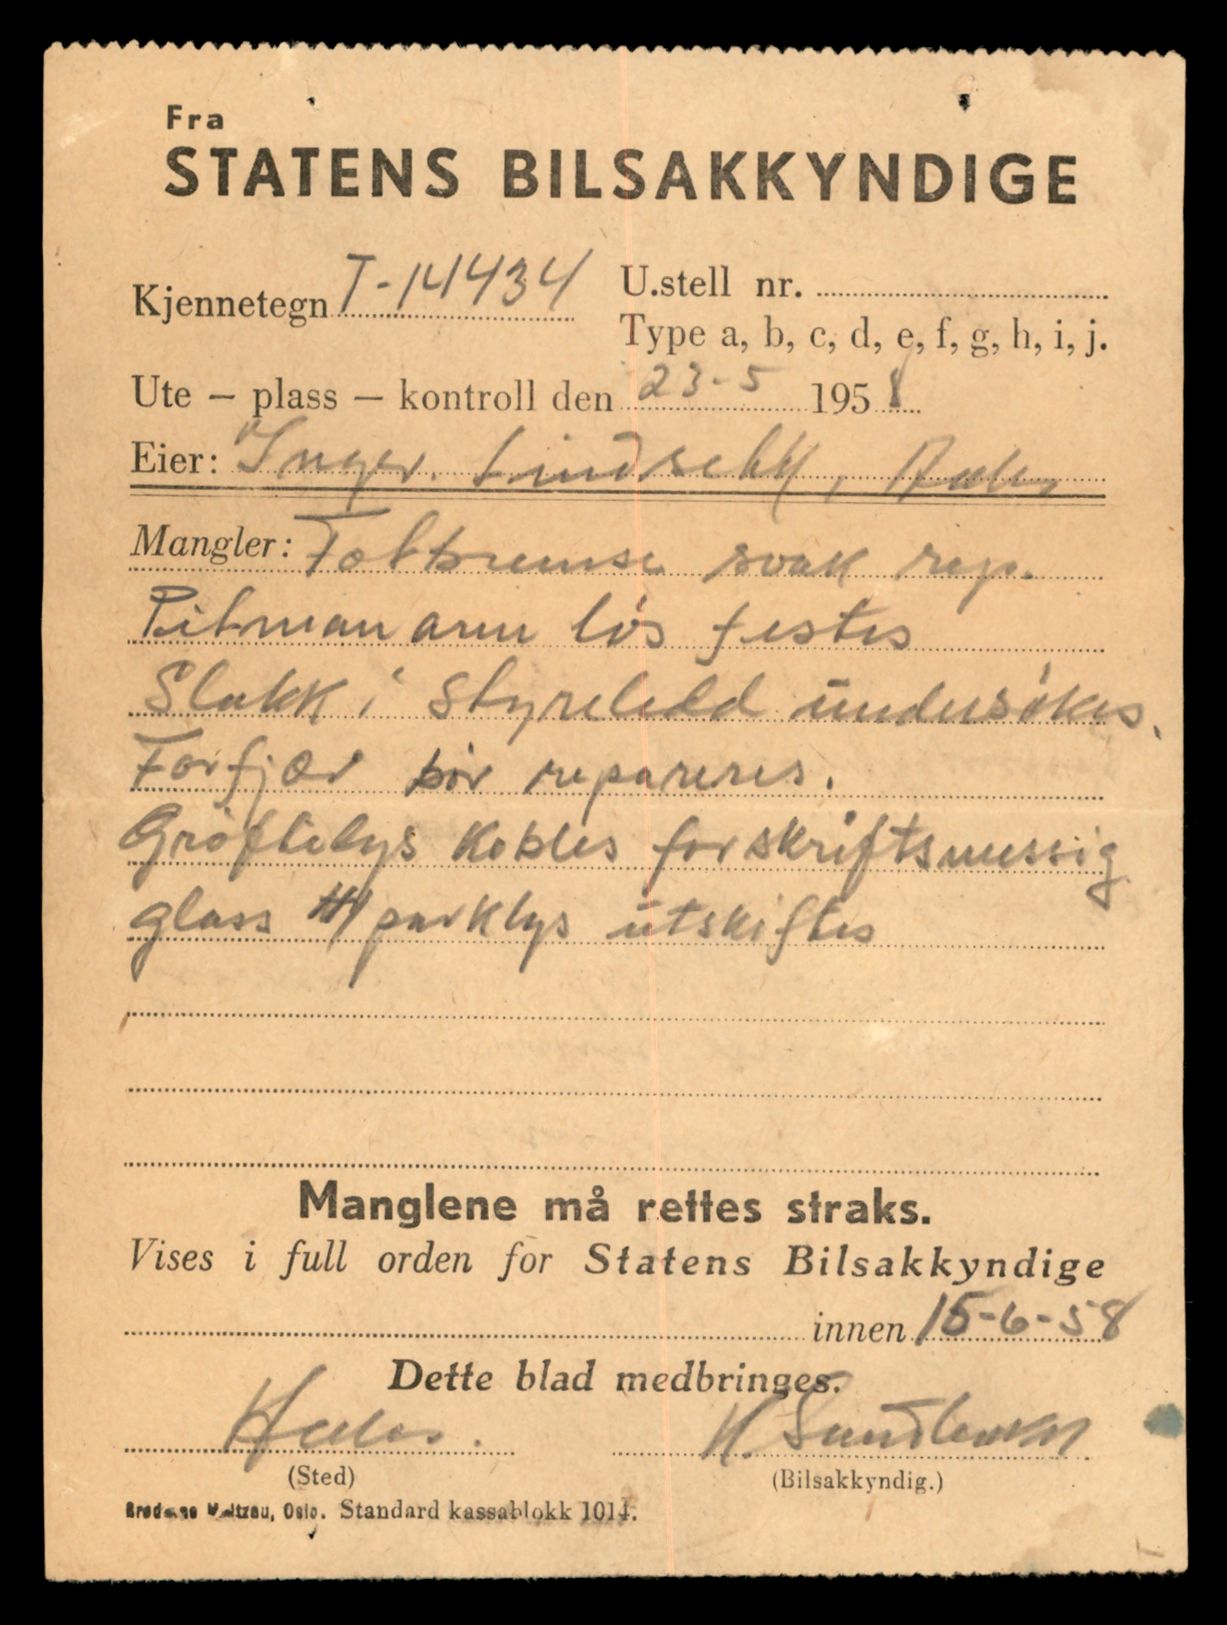 Fra
STATENS BILSAKKYNDIGE
Kjennetegn T-14434 U.stell nr.
Type a, b, c, d, e, f, g, h, i, j.
Ute – plass – kontroll den 23-5 1958
Eier: Inger.
Mangler: Fotbremse svak rep.
Pitman arm lös festes
Slakk i styreledd undersökes.
Forfjær bör repareres.
Gröftelys kobles forskriftsmessig
glass parklys utskiftes
Manglene må rettes straks.
Vises i full orden for Statens Bilsakkyndige
innen 15-6-58
Dette blad medbringes.
H.
(Sted) (Bilsakkyndig.)
Oslo. Standard kassablokk 1014.